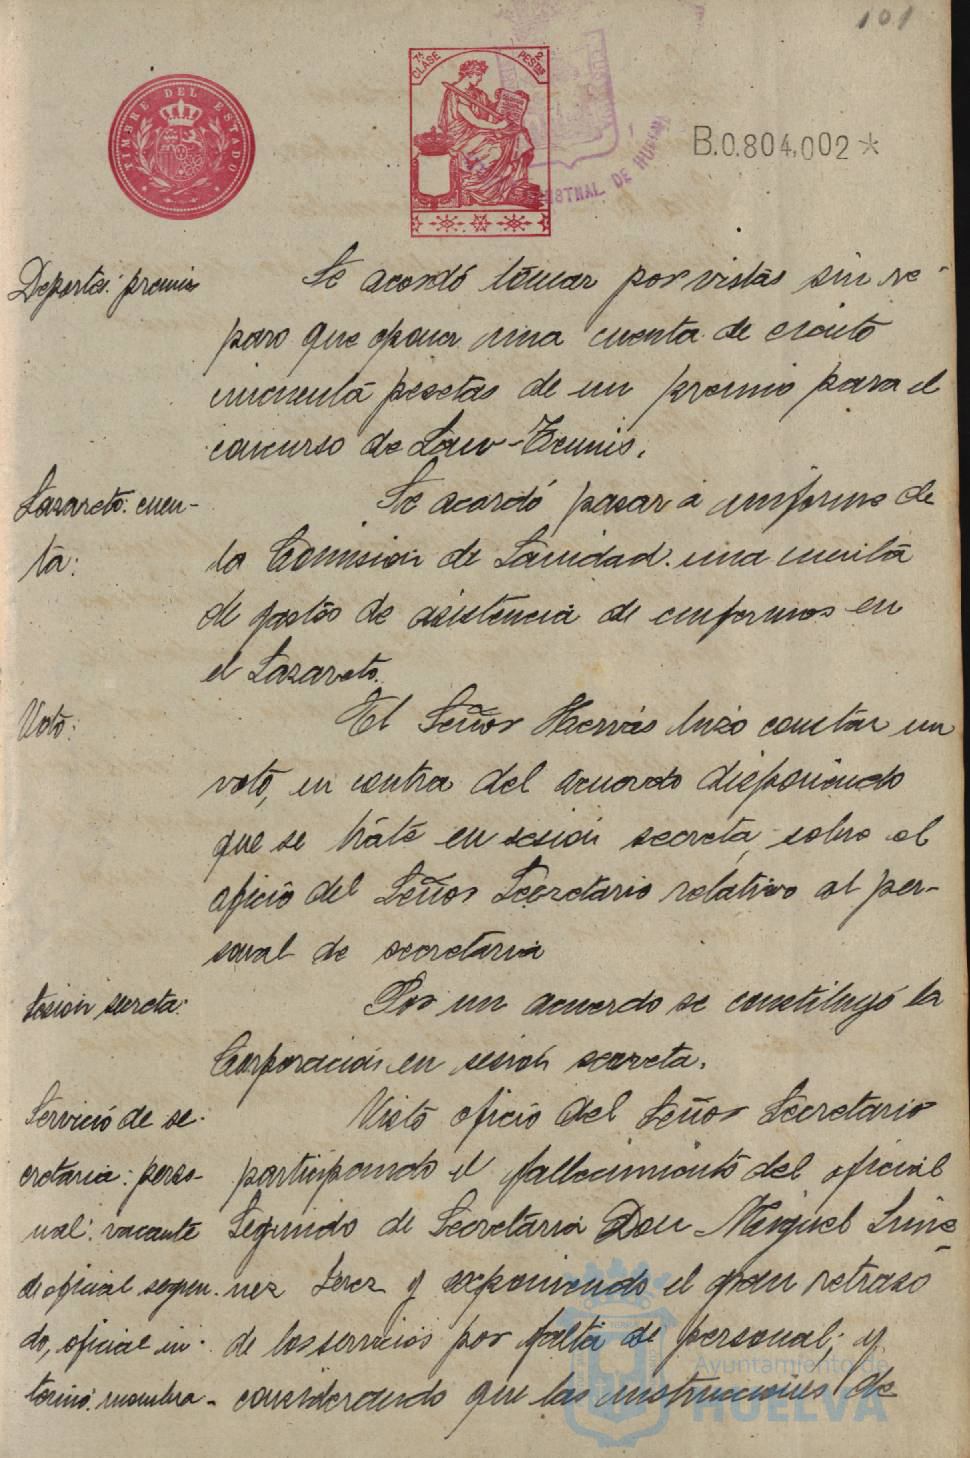 101
TIMBRE DEL ESTADO
7ª CLASE
2 PESTAS
B.0.804,002*
Deportes: premio
Se acordó tomar por vistas sin re-
paro que oponer una cuenta de ciento
cincuenta pesetas de un premio para el
concurso de Law-Tennis.
Lazareto: cuen-
ta:
Se acordó pasar á informe de
la Comisión de Sanidad una cuenta
de gastos de asistencia de enfermos en
el Lazareto.
Voto:
El Señor Hervás hizo constar un
voto, en contra del acuerdo disponiendo
que se trate en sesión secreta, sobre el
oficio del Señor Secretario relativo al per-
sonal de secretaria
Sesión secreta:
Por un acuerdo se constituyó la
Corporación en sesión secreta.
Servicio de se-
cretaria: perso-
nal: vacante
de oficial segun-
do, oficial in-
terino: nombra-
Visto oficio del Señor Secretario
participando el fallecimiento del oficial
Segundo de Secretaria Don Miguel Jimé-
nez Perez y exponiendo el gran retraso
de los servicios por falta de personal; y
considerando que las instrucciones de
Ayuntamiento de
HUELVA